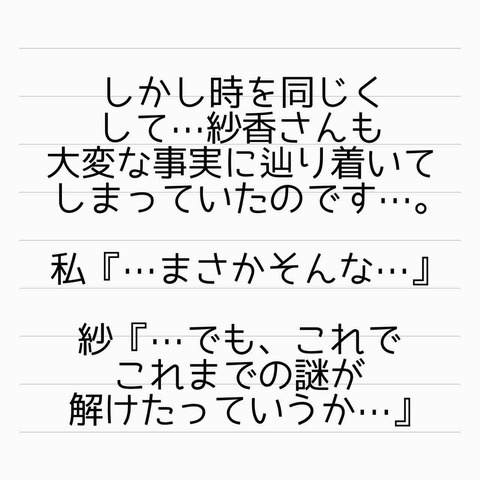 しかし時を同じく
して…紗香さんも
大変な事実に辿り着いて
しまっていたのです…。
私『…まさかそんな…』
紗『…でも、これで
これまでの謎が
解けたっていうか…』